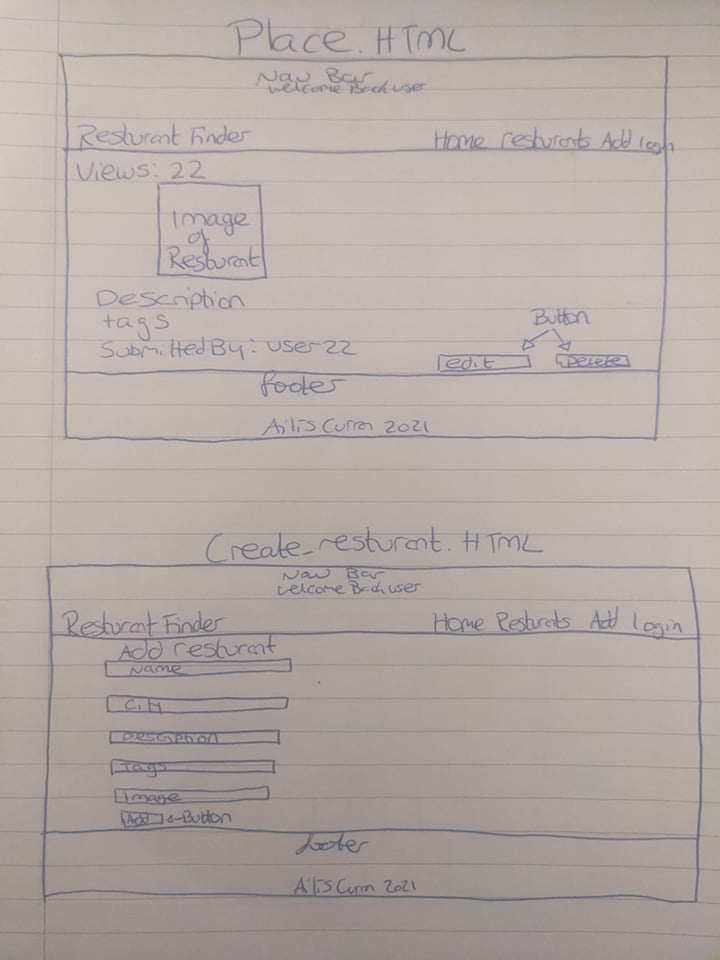 Place.HTML
Nav Bar
welcome Back user
Resturant Finder Home resturants Add login
Views: 22
Image
of
Resturant
Description
tags
Button
Submitted By: user 22
edit Delete
footer
Ailis Curran 2021
Create_resturant.HTML
Nav Bar
welcome Back user
Resturant Finder Home Resturants Add Login
Add resturant
Name
City
Description
Tags
Image
Add ←Button
footer
Ailis Curran 2021